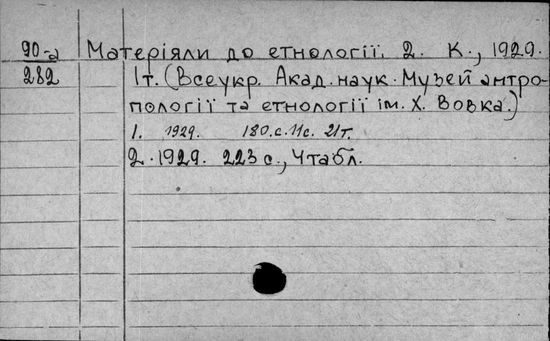 90-а Матеріяли до етнології. 2. К., 1929.
282 1т. (Всеукр. Акад. наук. Музей антро-
пології та етнології ім. Х. Вовка.)
1. 1929. 180.с. 11с. 21т.
2. 1929. 223 с., 4 табл.